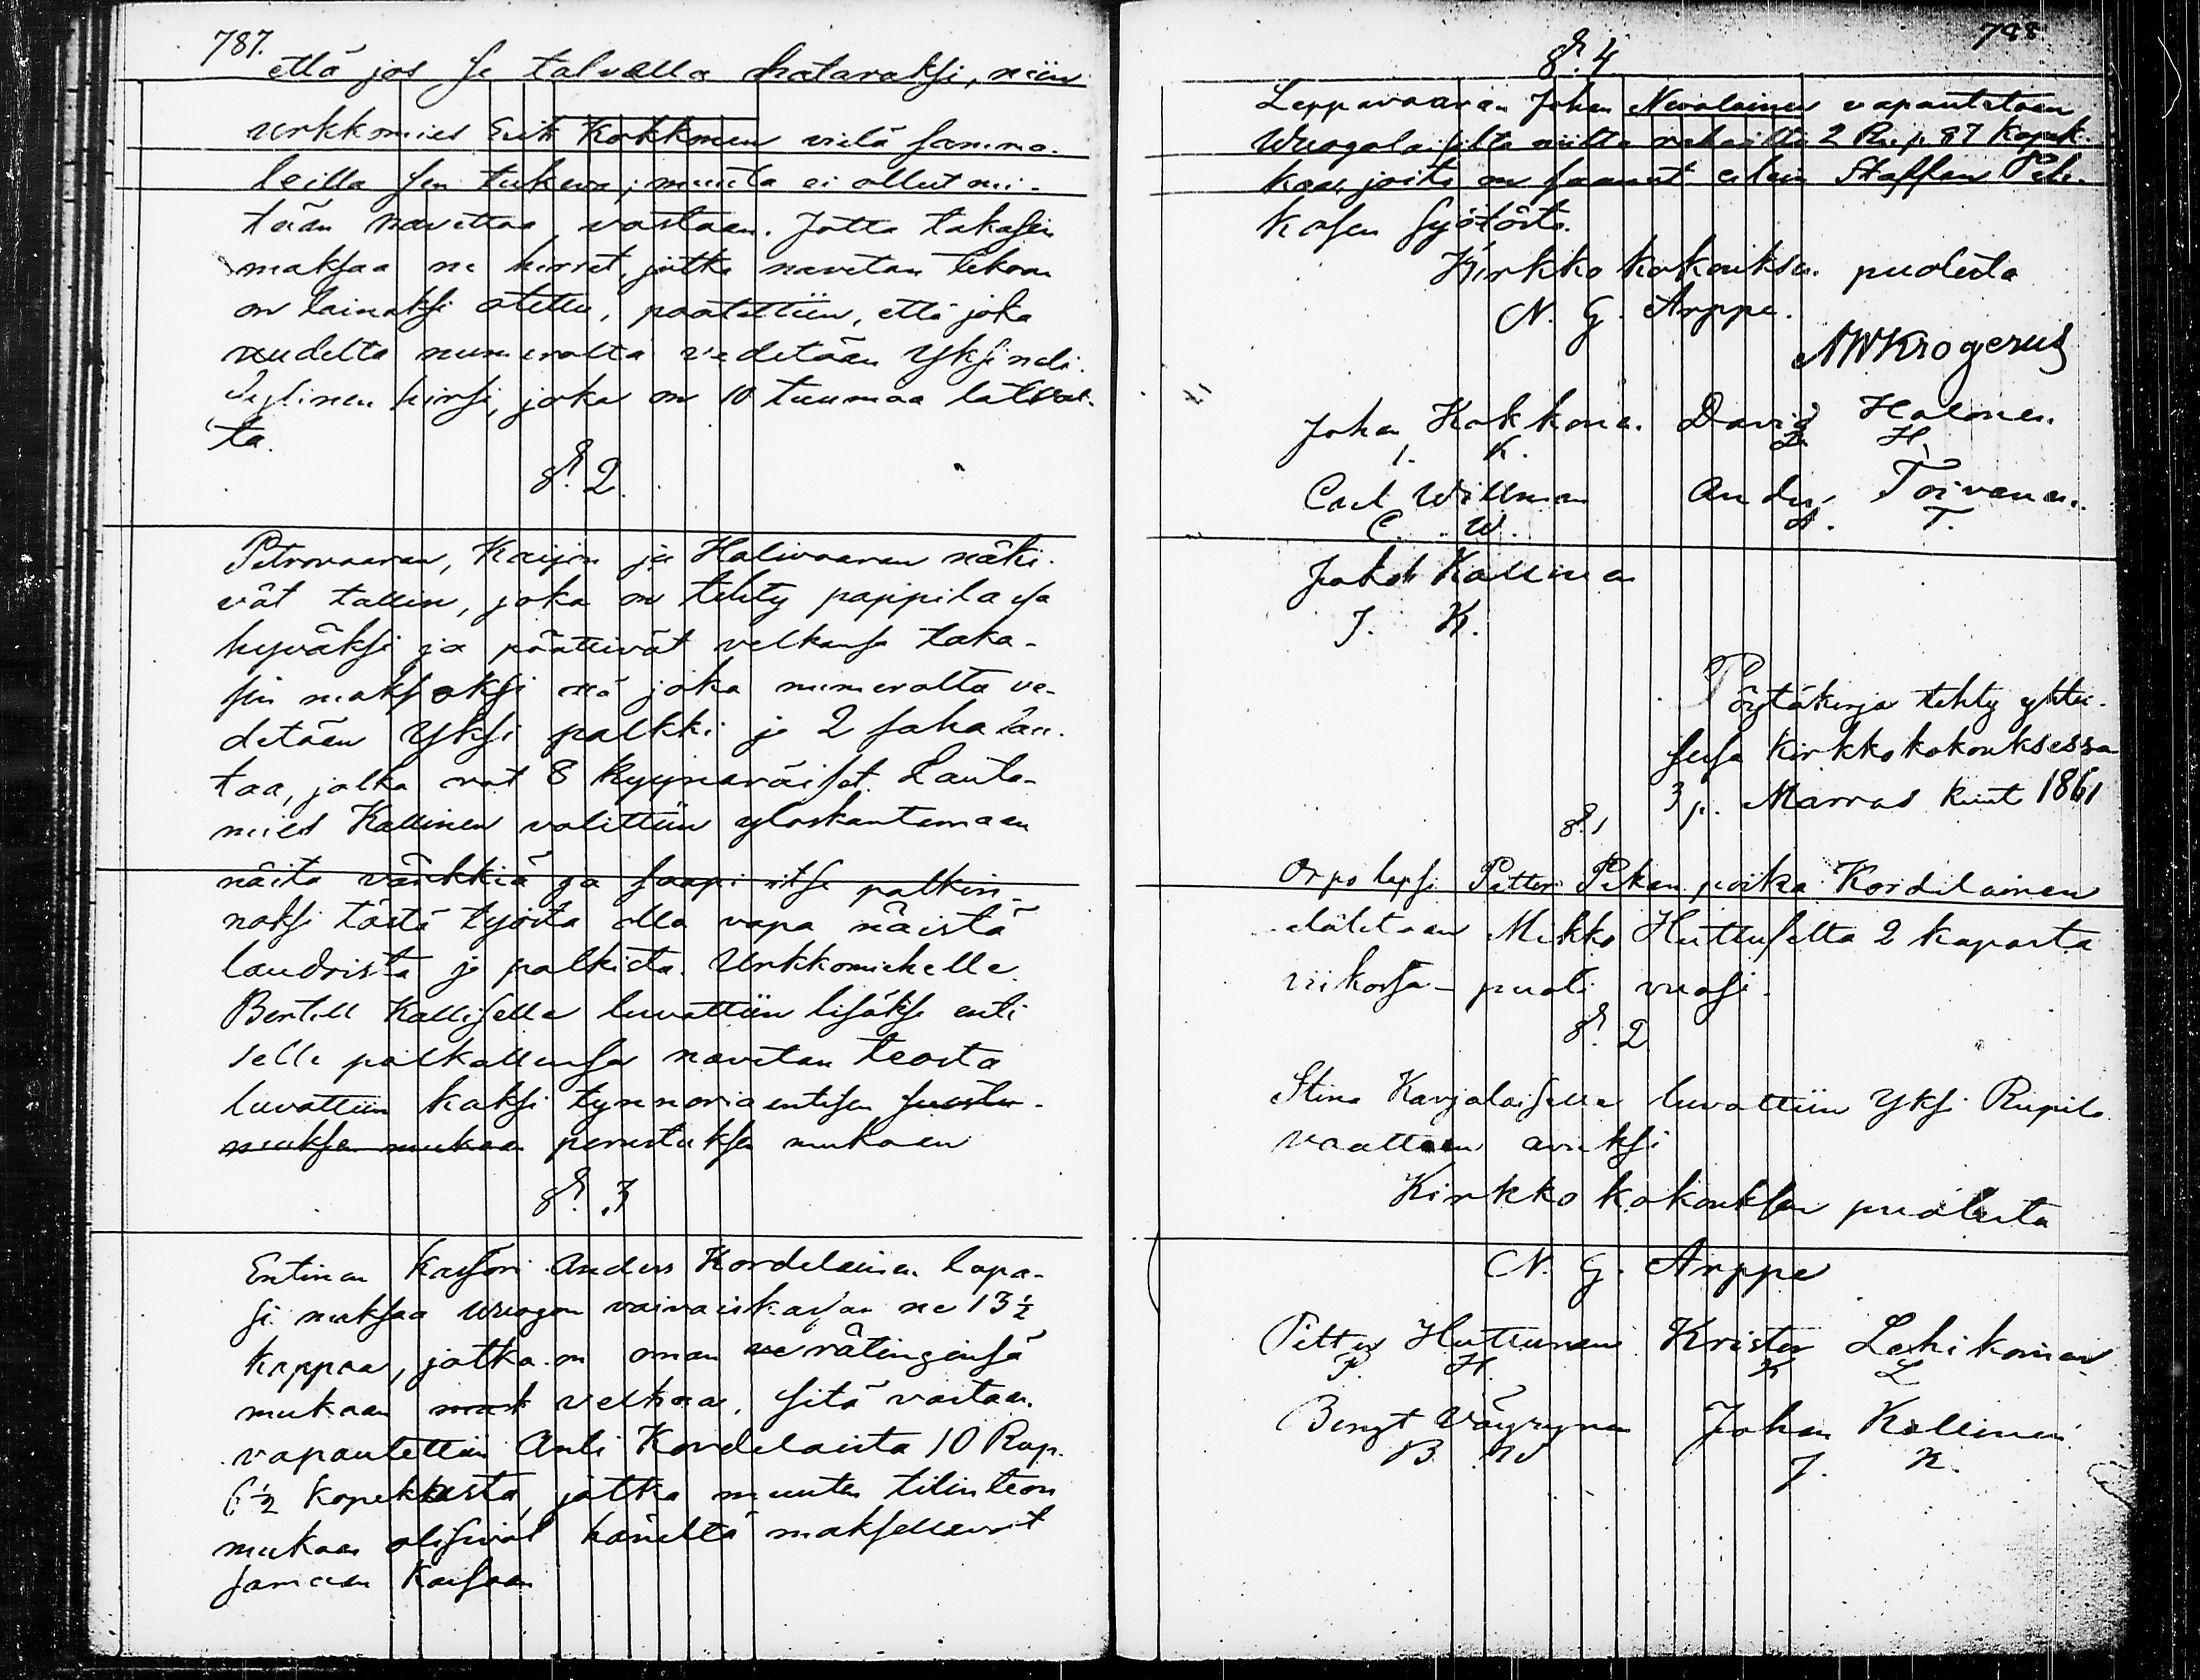 787.
että jos se talvella hataraksi, niin
Urkkomies Erik Kokkonen vielä samma-
loilla sen tukeva; muuta ei ollut mi-
tään navettaa vastaan. Jotta takasin
maksaa ne hirret, jotka navetan tekoon
on lainaksi otettu, päätettiin, että joka
uudelta numeralta vedetään Yksi neli-
sylinen hirsi, joka on 10 tuumaa latval-
ta.
§. 2.
Petrovaaran, Kaijin ja Halivaaran näki-
vät tallin, joka on tehty pappilassa
hyväksi ja päättivät velkansa taka-
sin maksaksi että joka numeralta ve-
detään Yksi palkki ja 2 saha lau-
taa, jotka ovat 8 kyynäräiset. Lauta-
mies Kallinen valittiin uloskantamaan
näitä värkkiä ja saapi itse palkin-
noksi tästä työstä olla vapa näistä
laudoista ja palkista. Urkkomiehelle
Bertill Kalliselle luvattiin lisäksi enti
selle palkallensa navetan teosta
luvattiin kaksi tynnoria entisen suostu-
muksen mukaan perustuksen mukaan
§. 3
Entinen Kassöri Anders Kordelainen lupa-
si maksaa Wuogon vaivaiskassan ne 13 ½
kappaa, jotka on oman verätinginsä
mukaan velkaa. Sitä vastaan
vapautettiin Anti Kordelaista 10 Rup.
6 ½ Kopekkasta, jotka muuten tilinteon
mukaan olisivat häneltä maksettavat
samaan Kassaan
788
§. 4
Leppävaaran Johan Nevalainen vapautetaan
Wuogolaisilta niiltä rahoilta 2 Rup. 87 Kopek-
kaa, joita on saanut edein Staffan Peh-
kosen syötöstä.
Kirkko kokouksen puolesta
N. G. Arppe.
A W Krogerus
Johan Kokkonen David Halonen
I. K. D H.
Carl Willman Anders Toivanen.
C. W. A. T.
Jakob Kallinen
J. K.
Pöytäkirja tehty yhtei-
sessä Kirkkokokouksessa
3 p. Marras kuut 1861
§. 1
Orpo lapsi Petter Pekan poika Kordelainen
elätetään Mikko Huttuselta 2 kaparta
viikossa - puoli vuosi.
§. 2
Stina Karjalaiselle luvattiin Yksi Rupila
vaatteen avuksi
Kirkko kokouksen puolesta
N. G. Arppe
Petter Huttunen Krister Lehikoinen
P. H. K L
Bengt Väyrynen Johan Kallinen
B. W J. K.